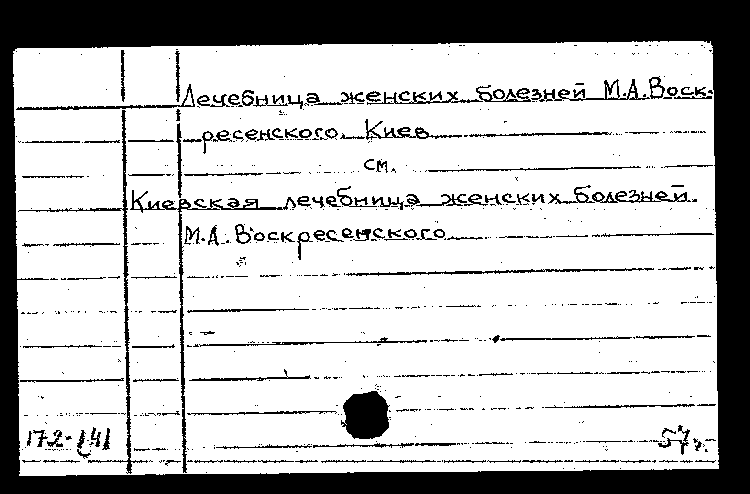 Лечебница женских болезней М.А.Воск-
ресенского. Киев
см.
Киевская лечебница женских болезней
М.А.Воскресенского
172-141
57г.